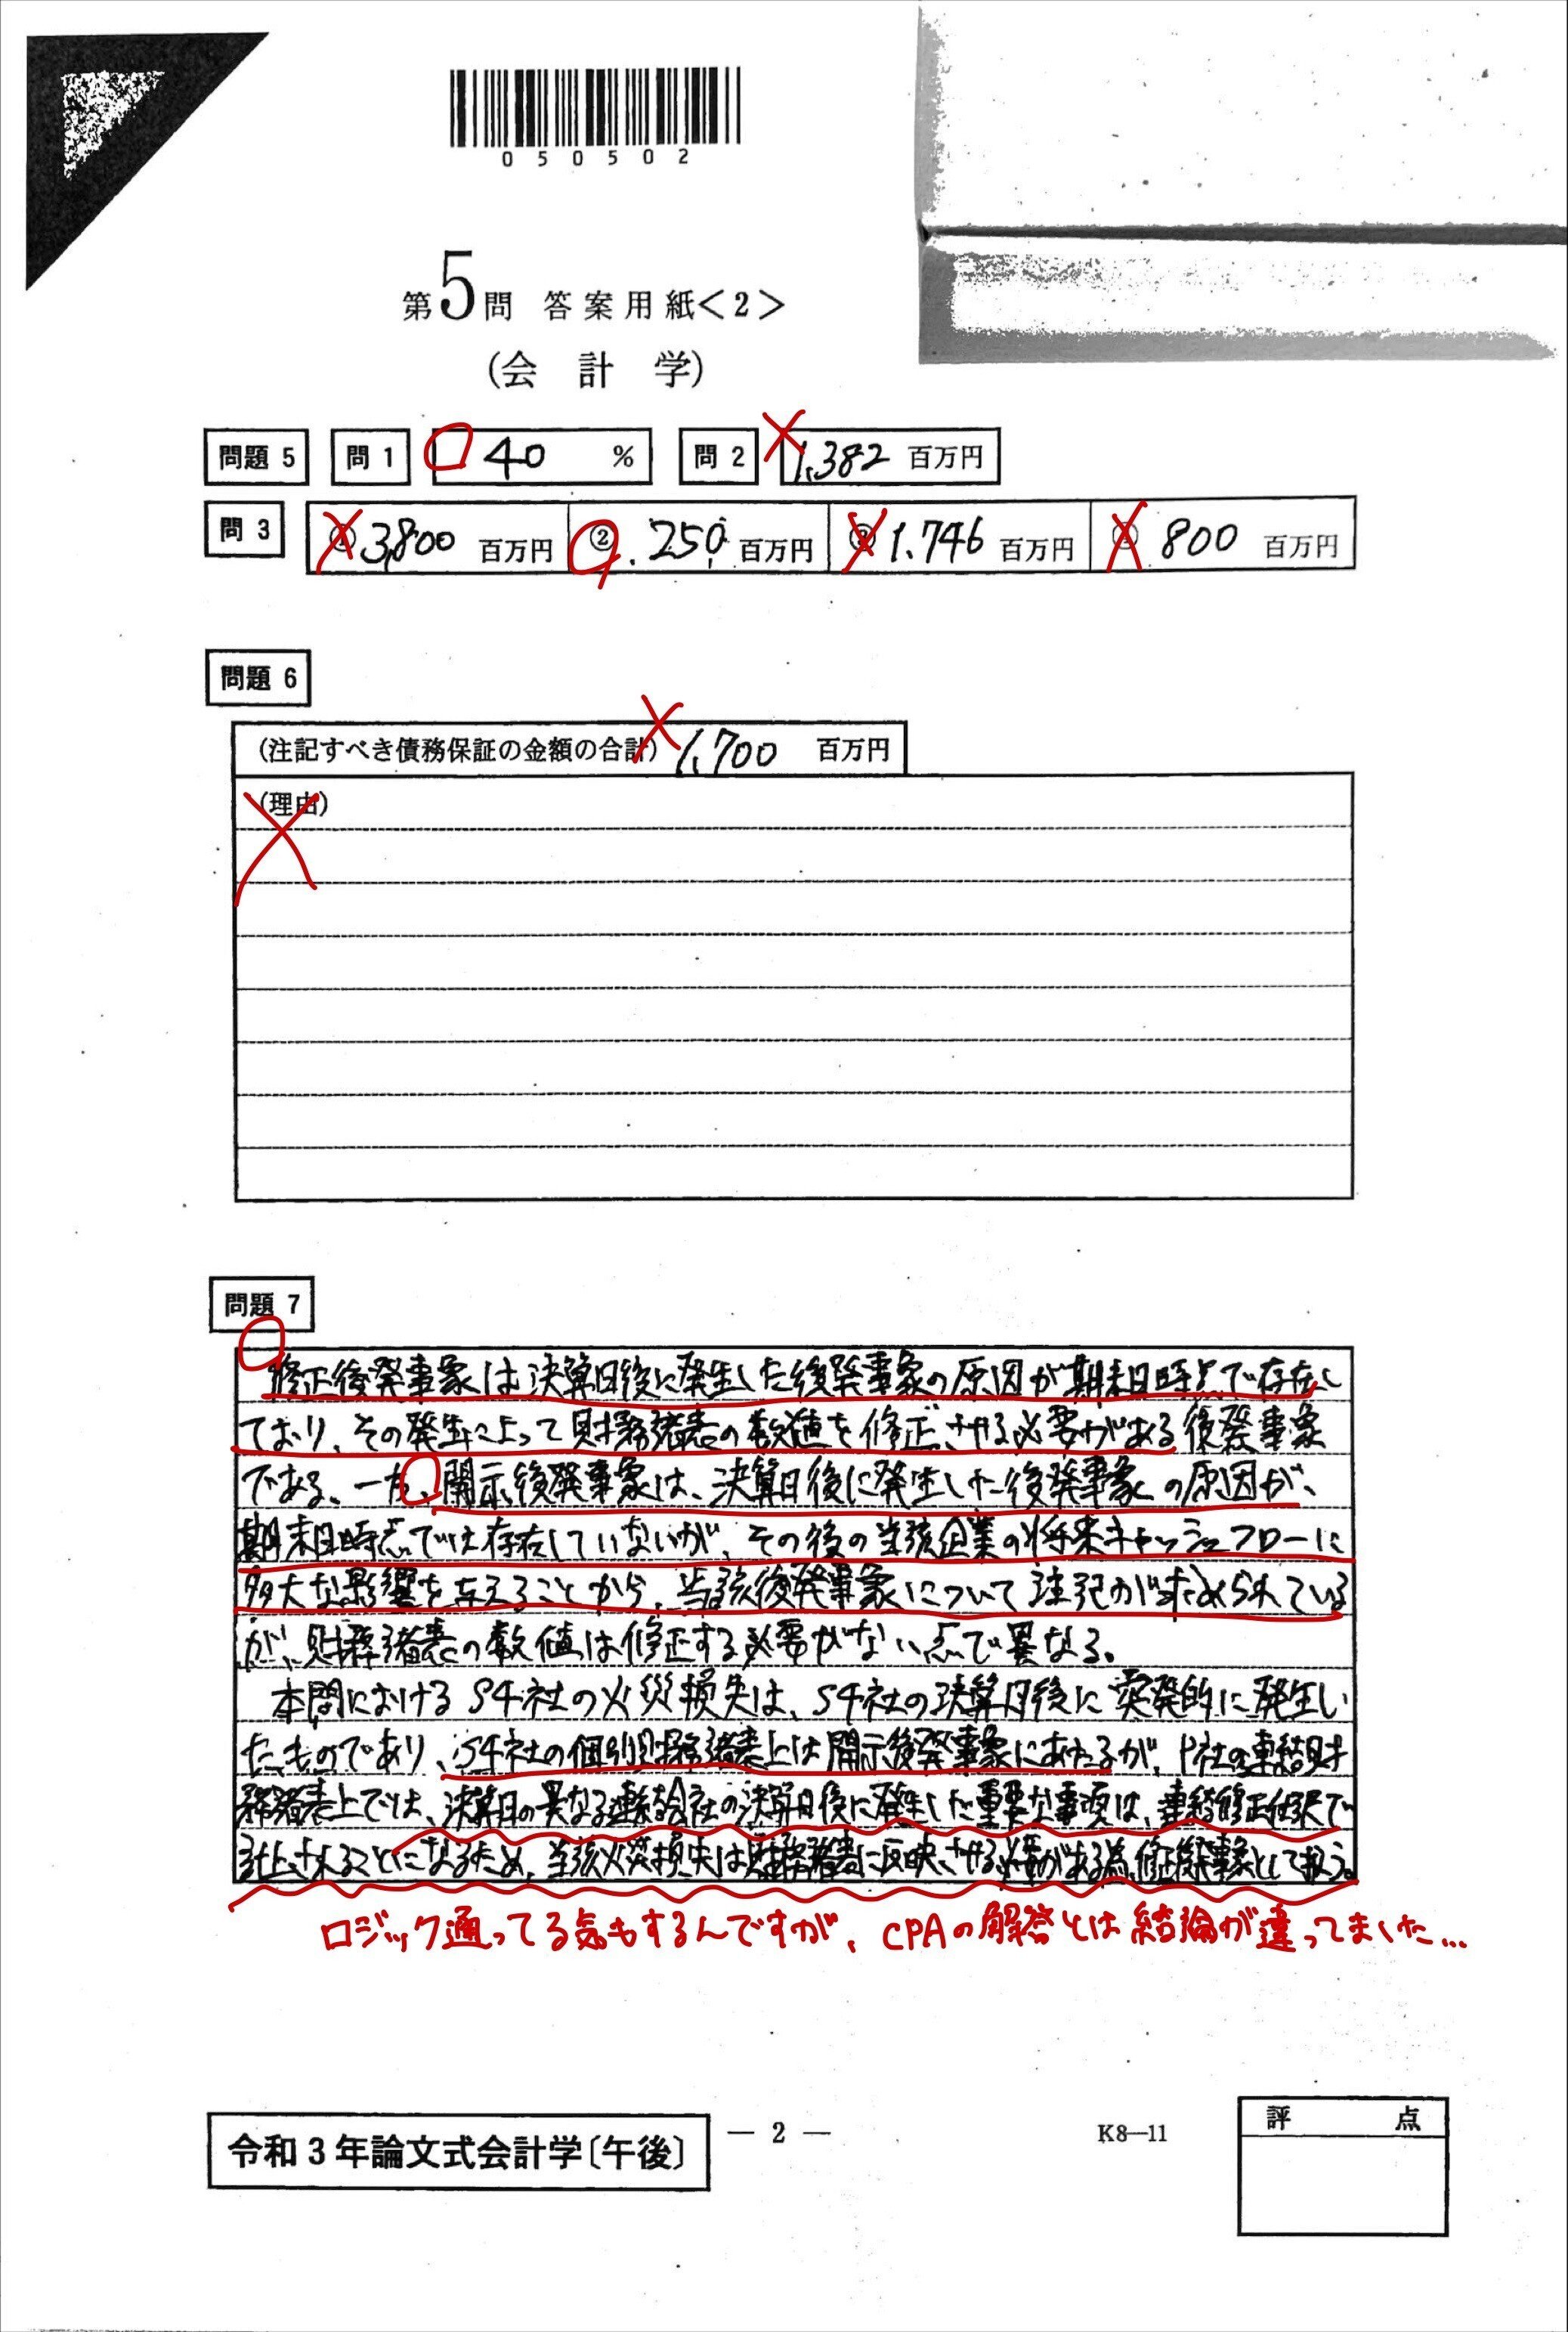 050502
第5問 答案用紙<2>
(会計学)
問題 5 問 1 40 % 問 2 1,382 百万円
問 3 ① 3,800 百万円 ② 250 百万円 ③ 1,746 百万円 ④ 800 百万円
問題 6
(注記すべき債務保証の金額の合計) 1,700 百万円
(理由)
問題 7
修正後発事象は決算日後に発生した後発事象の原因が期末日時点で存在し
ており、その発生によって財務諸表の数値を修正させる必要がある後発事象
である。一方、開示後発事象は、決算日後に発生した後発事象の原因が、
期末日時点では存在していないが、その後の当該企業の将来キャッシュフローに
多大な影響を与えることから、当該後発事象について注記が求められている
が、財務諸表の数値は修正する必要がない点で異なる。
本問におけるS4社の火災損失は、S4社の決算日後に突発的に発生し
たものであり、S4社の個別財務諸表上は開示後発事象にあたるが、P社の連結財
務諸表上では、決算日の異なる連結会社の決算日後に発生した重要な事項は、連結修正仕訳で
計上されることになるため、当該火災損失は財務諸表に反映させる必要がある為、修正後発事象として扱う。
ロジック通ってる気もするんですが、CPAの解答とは結論が違ってました…
令和3年論文式会計学〔午後〕
— 2 —
K8—11
評 点